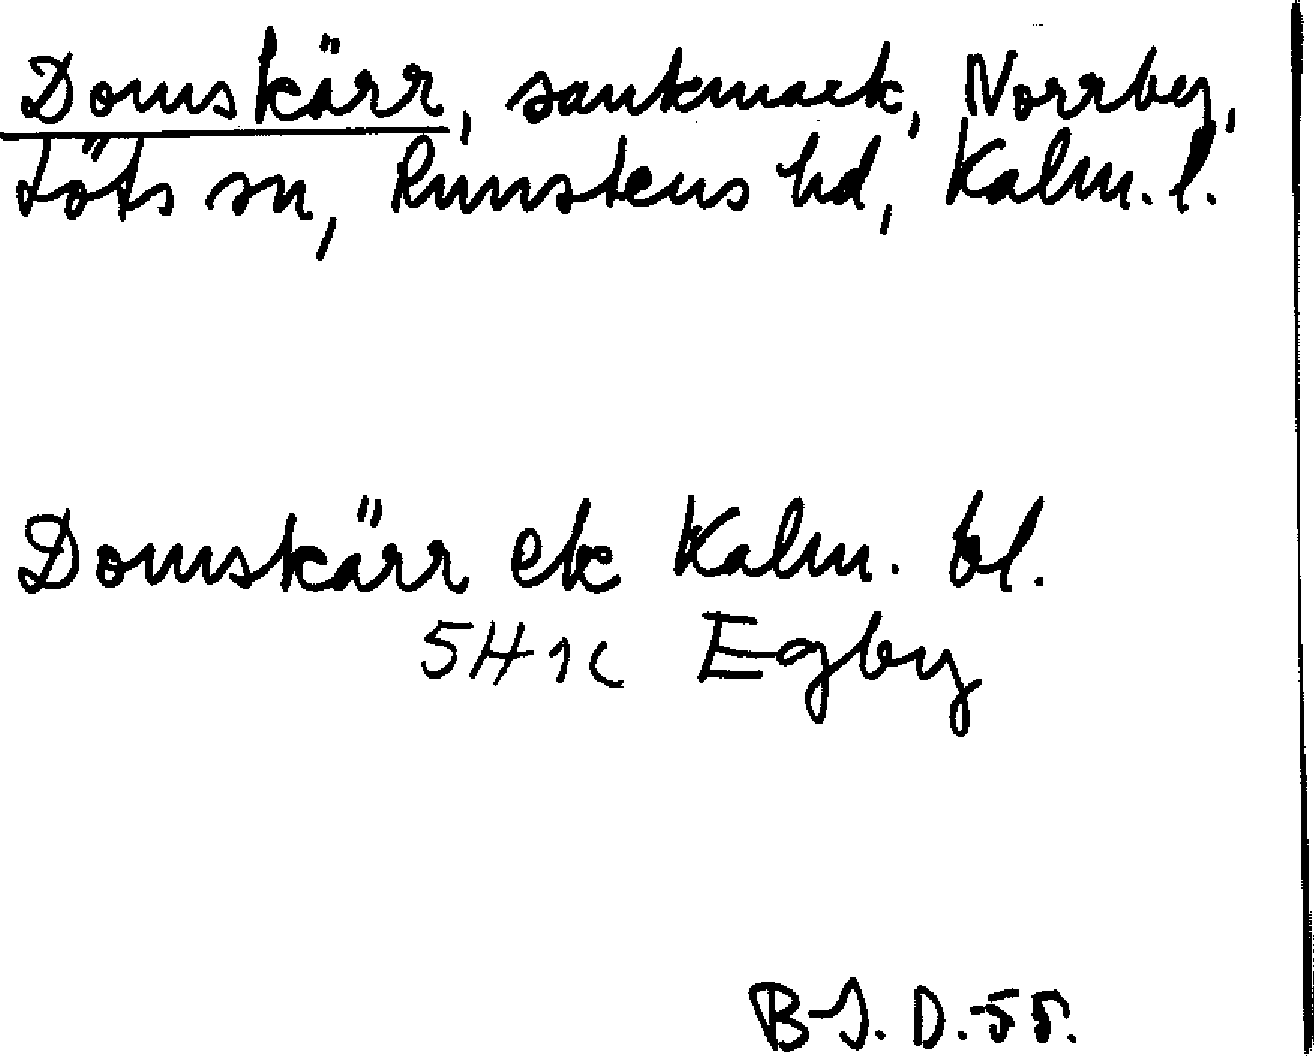 Domskärr, sankmark, Norrby,
Löts sn, Runstens hd, Kalm. l.
Domskärr ek Kalm. bl.
5H1c Egby
B-J. D.-55.